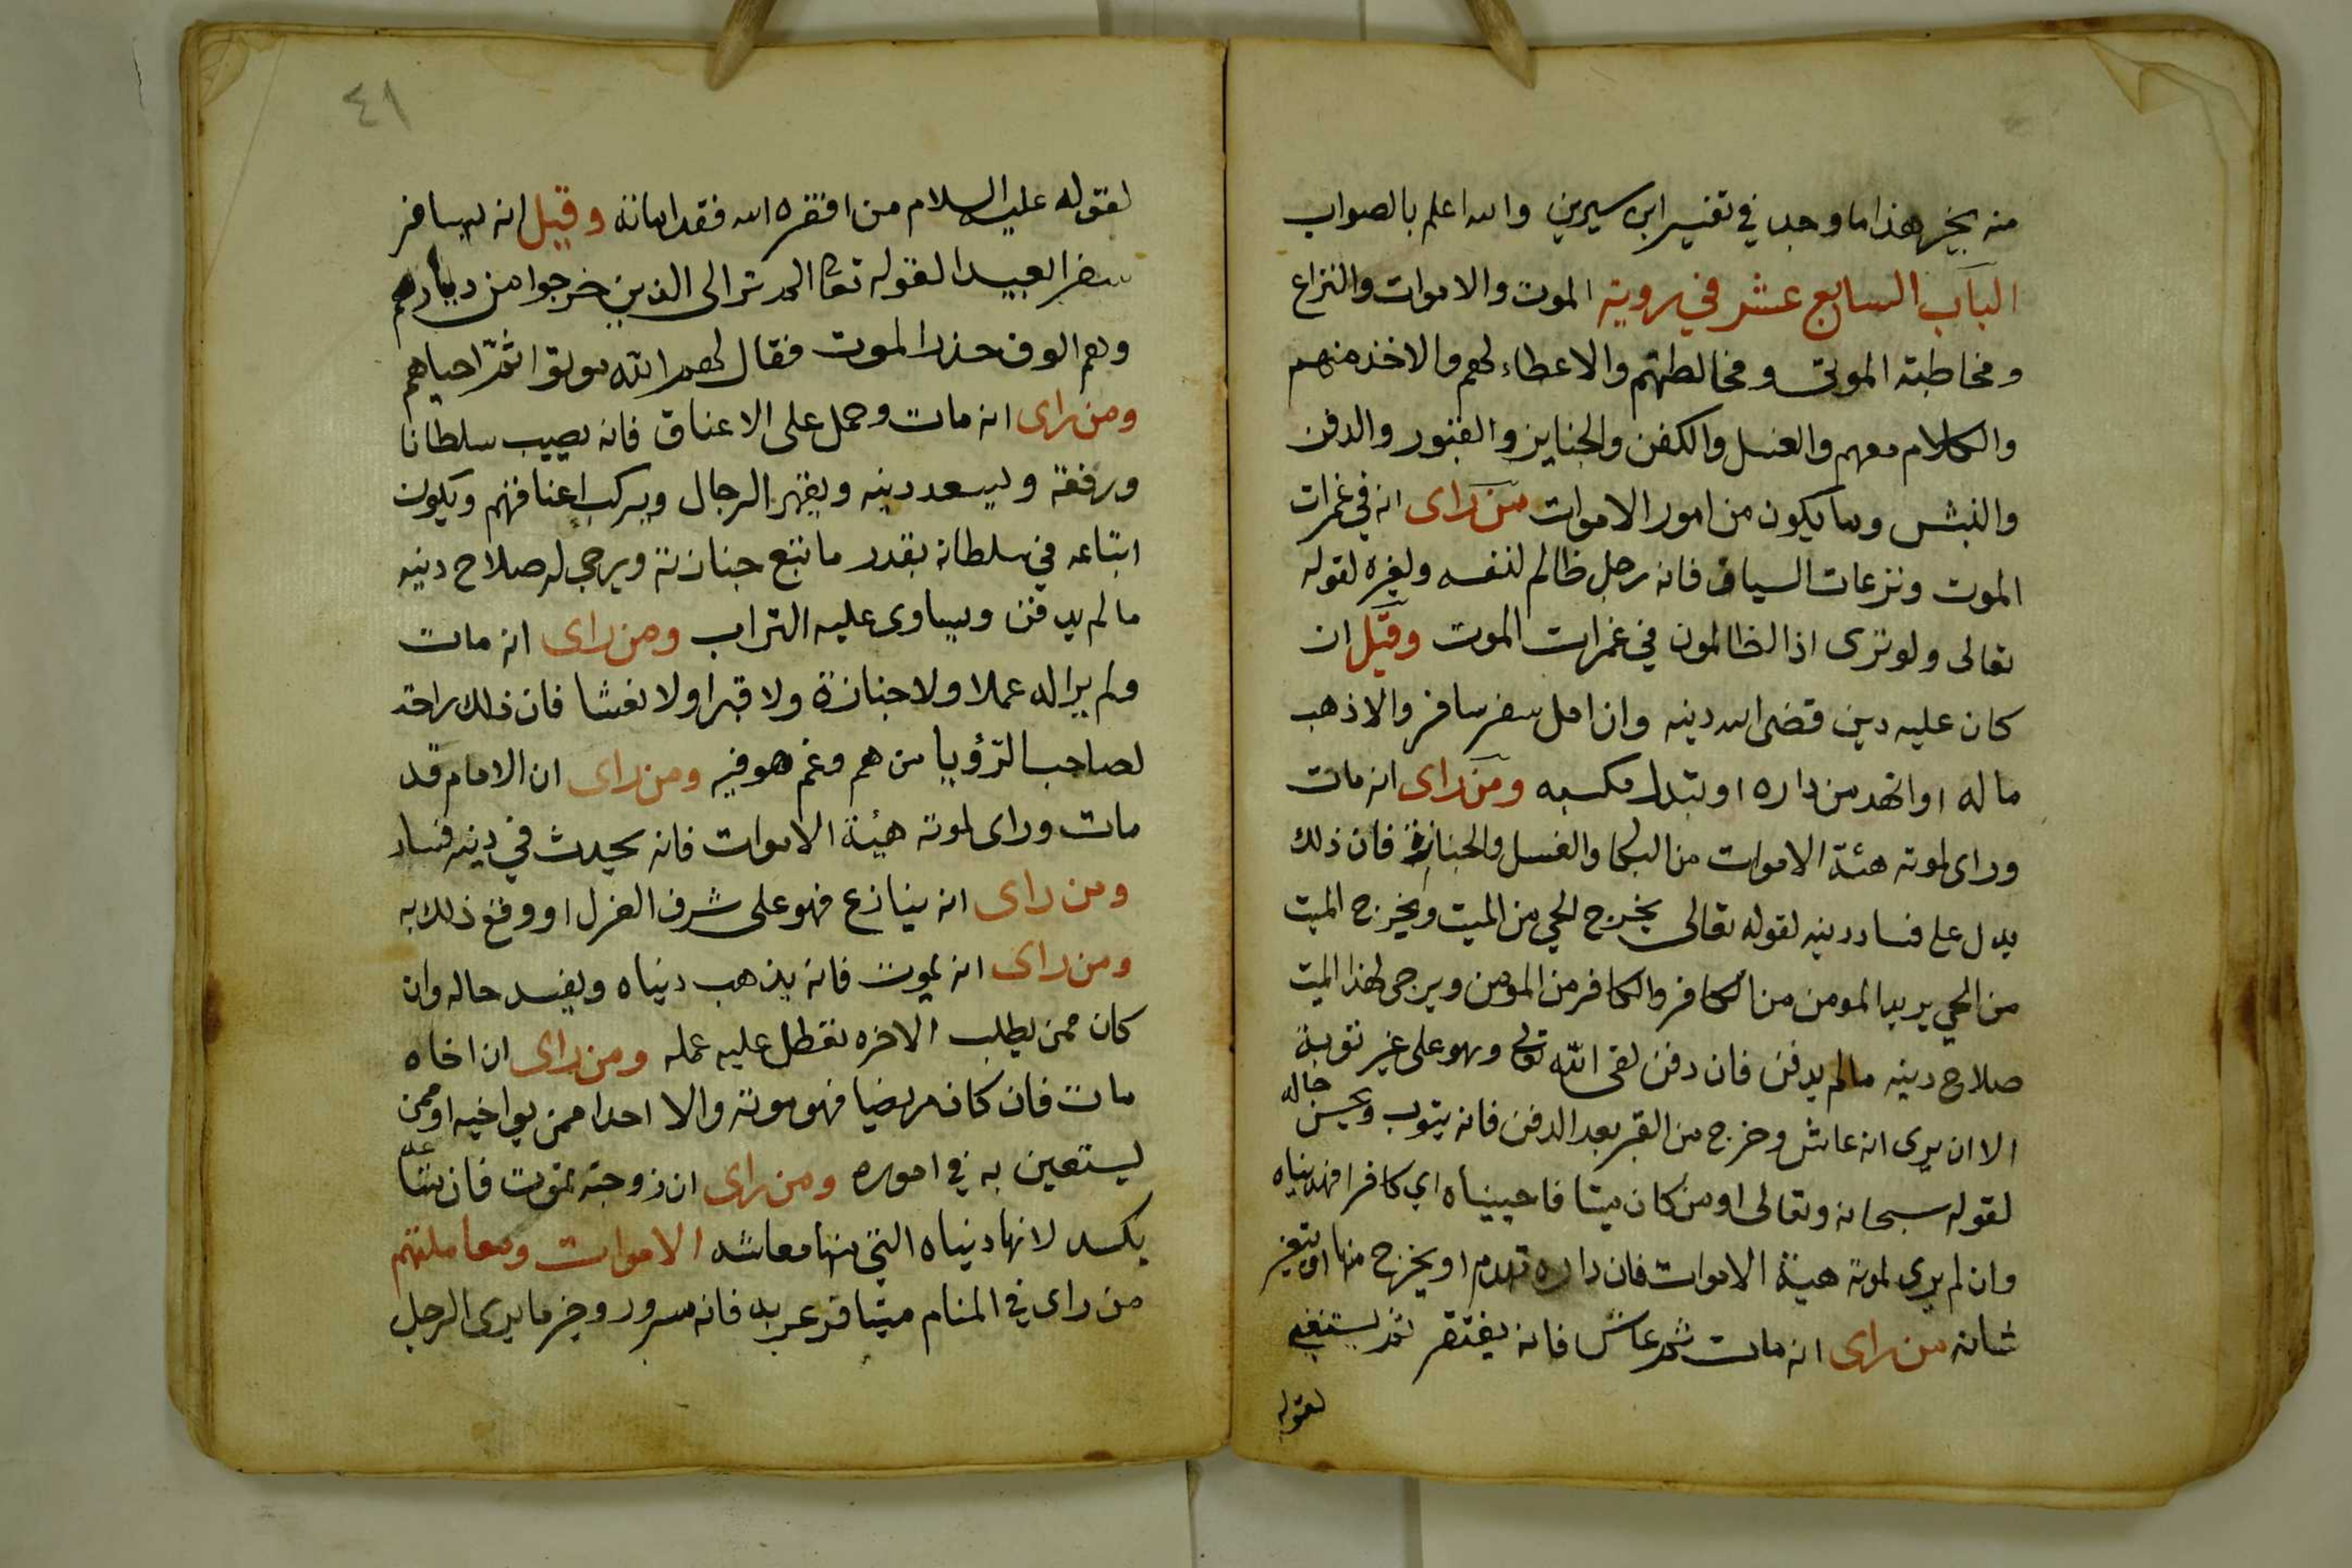 منه بخير هذا ما وجد في تفسير ابن سيرين والله اعلم بالصواب
الباب السابع عشر في روية الموت والاموات والنزاع
ومخاطبة الموتى ومخالطتهم والاعطاء لهم والاخذ منهم
والكلام معهم والغسل والكفن والجنايز والقبور والدفن
والنبش وما يكون من امور الاموات من راى انه في غمرات
الموت ونزعات السياق فانه رجل ظالم لنفسه ولغيره لقوله
تعالى ولو ترى اذ الظالمون في غمرات الموت وقيل ان
كان عليه دين قضى الله دينه وان امل سفر سافر والا ذهب
ماله او انهد من داره او تبدل مكسبه ومن راى انه مات
وراى لموته هئة الاموات من البكا والغسل والجنازة فان ذلك
يدل على فساد دينه لقوله تعالى يخرج الحي من الميت ويخرج الميت
من الحي يريد المومن من الكافر والكافر من المومن ويرجى لهذا الميت
صلاح دينه مالم يدفن فان دفن لقى الله تعالى وهو على غير توبة
الا ان يرى انه عاش وخرج من القبر بعد الدفن فانه يتوب ويحسن حاله
لقوله سبحانه وتعالى اومن كان ميتا فاحييناه اي كافرا فهديناه
وان لم يرى لموته هيئة الاموات فان داره تهدم او يخرج منها او يتغير
شانه من راى انه مات ثم عاش فانه يفتقر ثم يستغني
لقوله
٤١
لقوله عليه السلام من افقره الله فقد اماته وقيل انه يسافر
سفرا بعيدا لقوله تعا الم تر الى الذين خرجوا من ديارهم
وهم الوف حذر الموت فقال لهم الله موتوا ثم احياهم
ومن راى انه مات وحمل على الاعناق فانه يصيب سلطانا
ورفعة ويسعد دينه ويقهر الرجال ويركب اعناقهم ويكون
اتباعه في سلطانه بقدر ما تبع جنازته ويرجى له صلاح دينه
مالم يدفن ويساوى عليه التراب ومن راى انه مات
ولم ير اله عملا ولا جنازة ولا قبرا ولا نعشا فان ذلك راحة
لصاحب الرؤيا من هم وغم هو فيه ومن راى ان الامام قد
مات وراى لموته هيئة الاموات فانه يحدث في دينه فساد
ومن راى انه ينازع فهو على شرف العزل او وقع ذلك به
ومن راى انه يموت فانه يذهب دنياه ويفسد حاله وان
كان ممن يطلب الاخره تعطل عليه عمله ومن راى ان اخاه
مات فان كان مريضا فهو موته والا احدا ممن يواخيه او ممن
يستعين به في اموره ومن راى ان زوجته تموت فان
يكسد لانها دنياه التي منها معاشه الاموات ومعاملتهم
من راى في المنام ميتا قد عر به فانه سرور وخير ما يرى الرجل